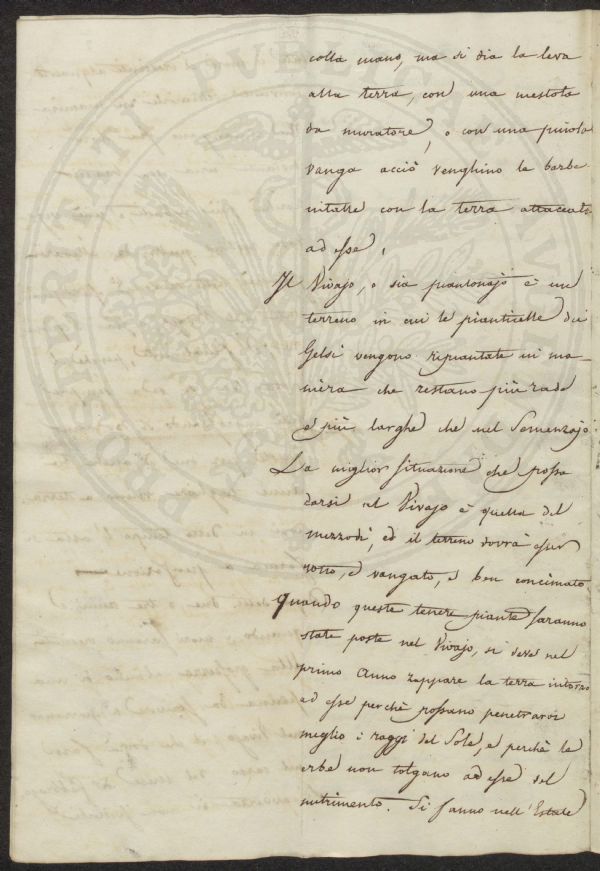 colla mano, ma si dia la leva
alla terra, con una mestola
da muratore, o con una piciola
vanga acciò venghino le barbe
unitasse con la terra attaccata
ad esse.
Il Vivajo, o sia piantonajo è un
terreno in cui le pianticelle dei
Gelsi vengono ripiantate in ma-
niera che restano più rade
e più larghe che nel Semenzajo
La miglior situazione che possa
darsi al Vivajo è quella del
mezzodì, ed il terreno dovrà esser
rotto, e vangato, e ben concimato
Quando queste tenere piante saranno
state poste nel Vivajo, si deve nel
primo Anno zappare la terra intorno
ad esse perchè possano penetrarvi
meglio i raggi del Sole, e perchè le
erbe non tolgano ad esse del
nutrimento. Si fanno nell'Estate
PROSPERITATI PUBLICAE